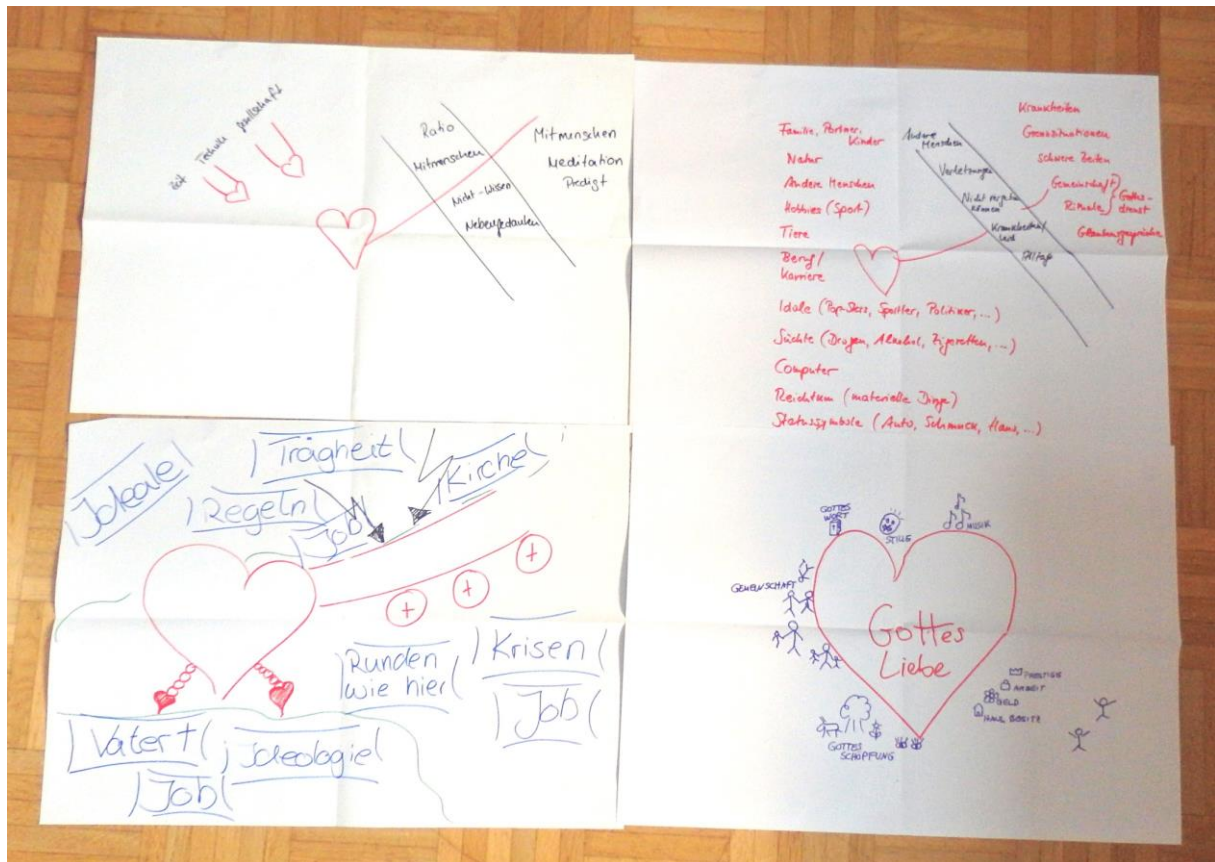 Zeit
Technik
Gesellschaft
Ratio
Mitmenschen
Nicht-Wissen
Nebengedanken
Mitmenschen
Meditation
Predigt
Familie, Partner,
Kinder
Natur
Andere Menschen
Hobbies (Sport)
Tiere
Beruf/
Karriere
Idole (Pop-Stars, Sportler, Politiker, ...)
Süchte (Drogen, Alkohol, Zigaretten, ...)
Computer
Reichtum (materielle Dinge)
Statussymbole (Auto, Schmuck, Haus, ...)
Andere
Menschen
Verletzungen
Nicht vergeben
können
Krankheiten/
Leid
Alltag
Krankheiten
Grenzsituationen
schwere Zeiten
Gemeinschaft
Rituale
Gottes-
dienst
Glaubensgespräche
Ideale
Trägheit
Kirche
Regeln
Job
Runden
wie hier
Krisen
Job
Vater †
Ideologie
Job
GOTTES
WORT
STILLE
MUSIK
GEMEINSCHAFT
Gottes
Liebe
PRESTIGE
ARBEIT
GELD
HAUS BESITZ
GOTTES
SCHÖPFUNG